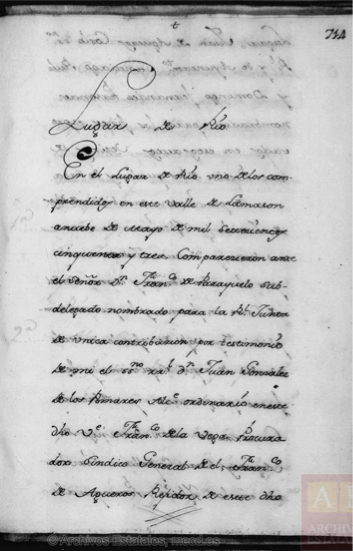 734
Lugar de Río
En el Lugar de Río uno de los com-
prendidos en este Valle de Lamason
a nuebe de Mayo de mil Setecientos
cinquenta y tres. Comparecieron ante
el Señor Dn. Franco. de Parayuelo Sub-
delegado nombrado para la Rl. Junta
de Unica contribución por testimonio
de mi el ssno. Dn. Juan Gonzalez
de los Pomares Alce. ordinario en este
dho Ve. Franco. de la Vega Procura
dor Síndico General de el, Franco.
de Agueros Rejidor de este dho
© Archivos Estatales, mecd.es